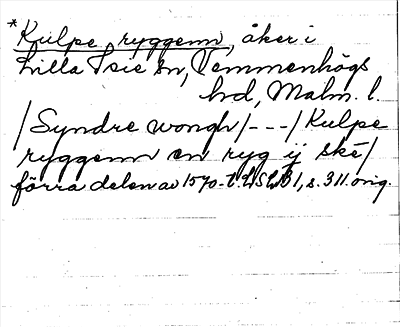 *Kulpe ryggenn, åker i
Lilla Isie sn, Vemmenhögs
hd, Malm. l.
/Syndre wongh/---/Kulpe
ryggenn en ryg ij ske/
förra delen av 1570-t. LSLB1, s. 311. orig.